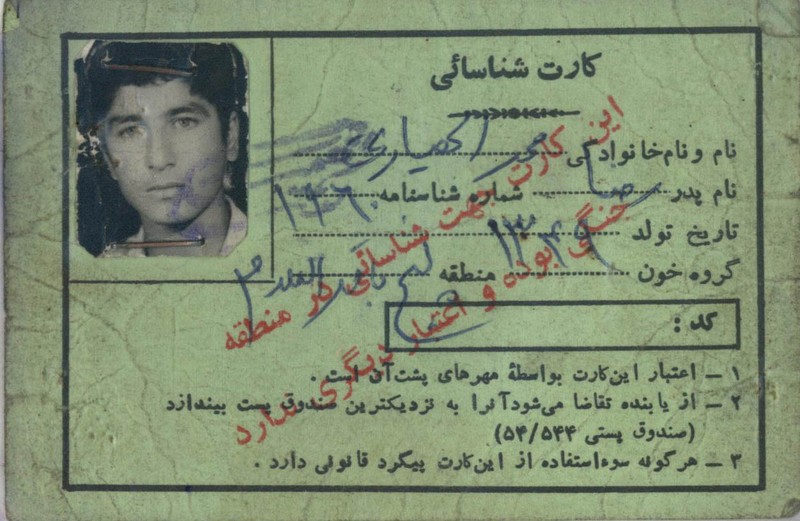 کارت شناسائی
نام و نام خانوادگی محمد
نام پدر شماره شناسنامه ۱۱۶
تاریخ تولد ۱۳۴۹
گروه خون منطقه
کد :
۱ – اعتبار این کارت بواسطهٔ مهرهای پشت آن است .
۲ – از یابنده تقاضا می‌شود آنرا به نزدیکترین صندوق پست بیندازد
(صندوق پستی ۵۴/۵۴۴)
۳ – هرگونه سوءاستفاده از این کارت پیگرد قانونی دارد .
این کارت جهت شناسائی در منطقه
جنگی بوده و اعتبار دیگری ندارد